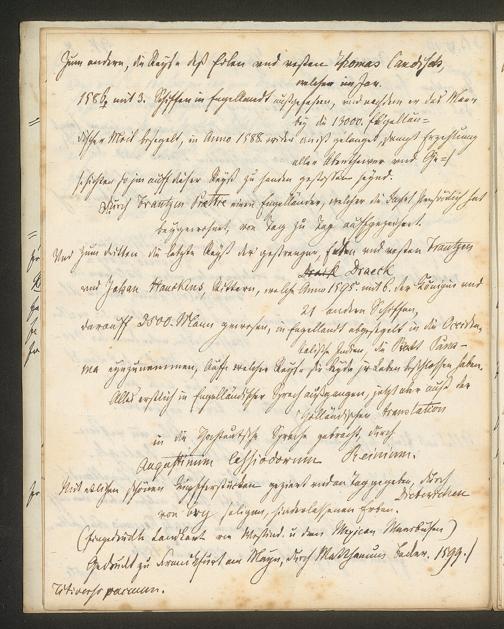 Zum andern, die Reyse deß Edlen und vesten Thomas Candisch,
welcher im Jar.
1586 mit 3. Schiffen in Engellandt außgefahren, und nachdem er das Meer
bey die 13000. Engellän-
discher Meil besegelt, in Anno 1588. wider anheim gelanget, sampt Erzehlung
aller Abentheuwer und Ge-
schichten so jm auff dieser Reyß zu handen gestossen seynd.
Durch Frantzen Prettie einen Engelländer, welcher die Fahrt persönlich hat
beygewohnet, von Tag zu Tag auffgezeichnet.
Und zum dritten die letzte Reyß der gestrengen, Edlen und vesten Frantzen
Draeck
und Johan Hauckens, Rittern, welche Anno 1595. mit 6. der Königin und
21 andern Schiffen,
darauff 2500. Mann gewesen, in Engellandt abgesegelt in die Occiden-
talische Indien, die Statt Pana-
ma eynzunemmen, Auff welcher Reyse sie beyde jr Leben beschlossen haben.
Alles erstlich in Engelländischer Sprach außgangen, jetzt aber auß der
Holländischen Translation
in die Hochteutsche Sprache gebracht, durch
Augustinum Cassiodorum Reinium.
Mit etlichen schönen Kupfferstücken geziert und an Tag gegeben, durch
Dieterichen
von Bry seligen, hinterlassenen Erben.
Gedruckt zu Franckfurt am Mayn, durch Matthaeum Becker. 1599.